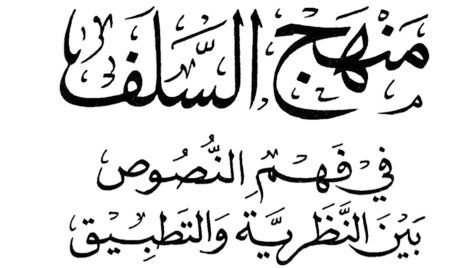 مَنْهَج السَّلَف
فِي فَهْمِ النُّصُوص
بَيْنَ النَّظَرِيَّة وَالتَطبِيق